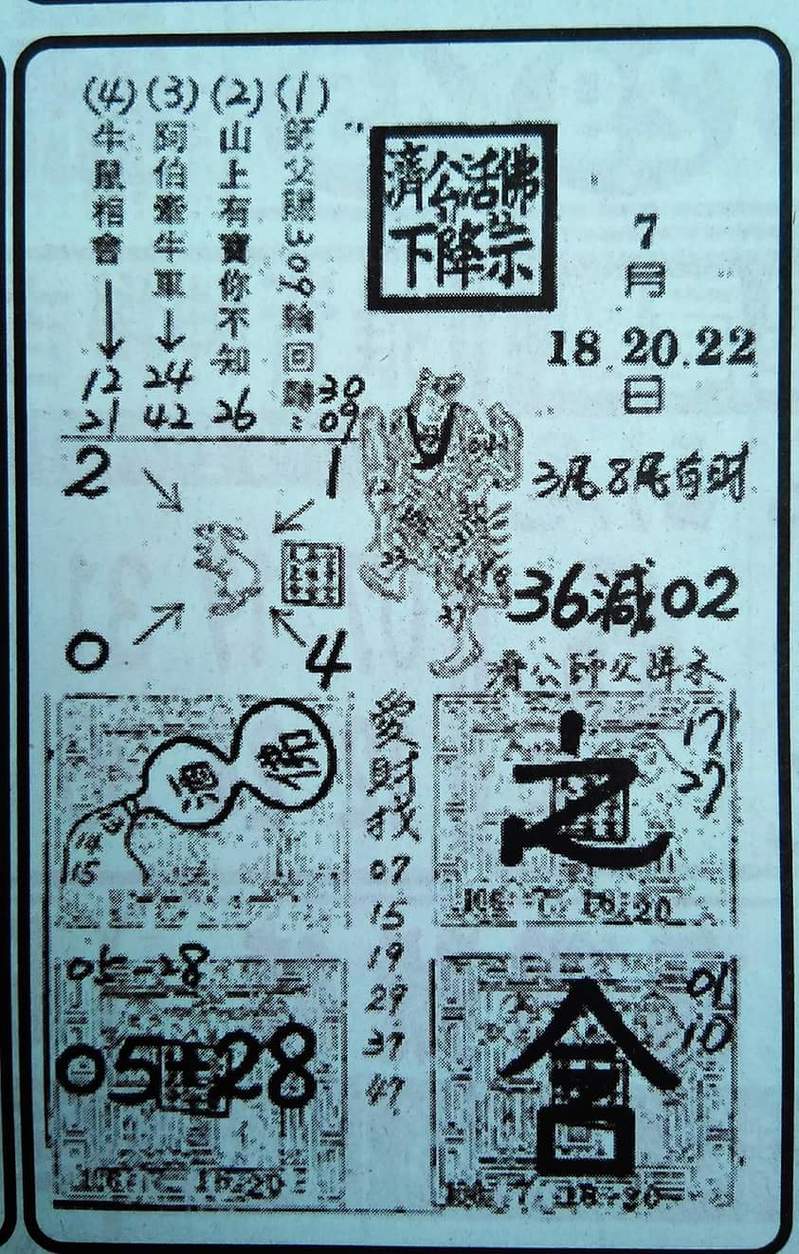 (1)師父賜309輪回時: 30 09
(2)山上有寶你不知 26
(3)阿伯牽牛車→24 42
(4)牛鼠相會→12 21
濟公活佛
下降示
7
月
18.20.22
日
3尾8尾有財
36減02
濟公師父
2
1
0
4
佛
酒
14
15
愛
財
找
07
15
19
29
37
47
之
17
27
106 7 18-20
05-28
05+28
106 7 18-20
合
01
10
106 7 18-20